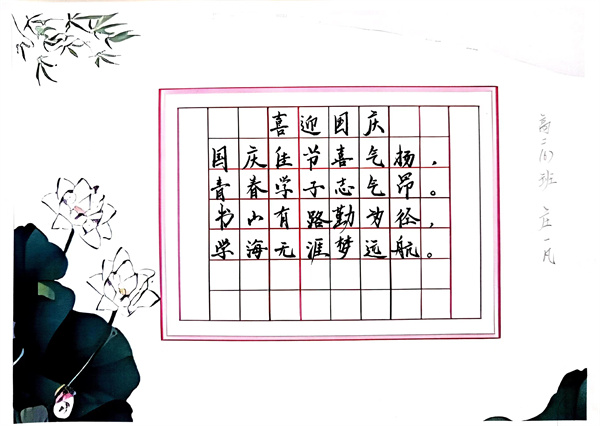 喜迎国庆
国庆佳节喜气扬，
青春学子志气昂。
书山有路勤为径，
学海无涯梦远航。
高二(1)班 庄一凡